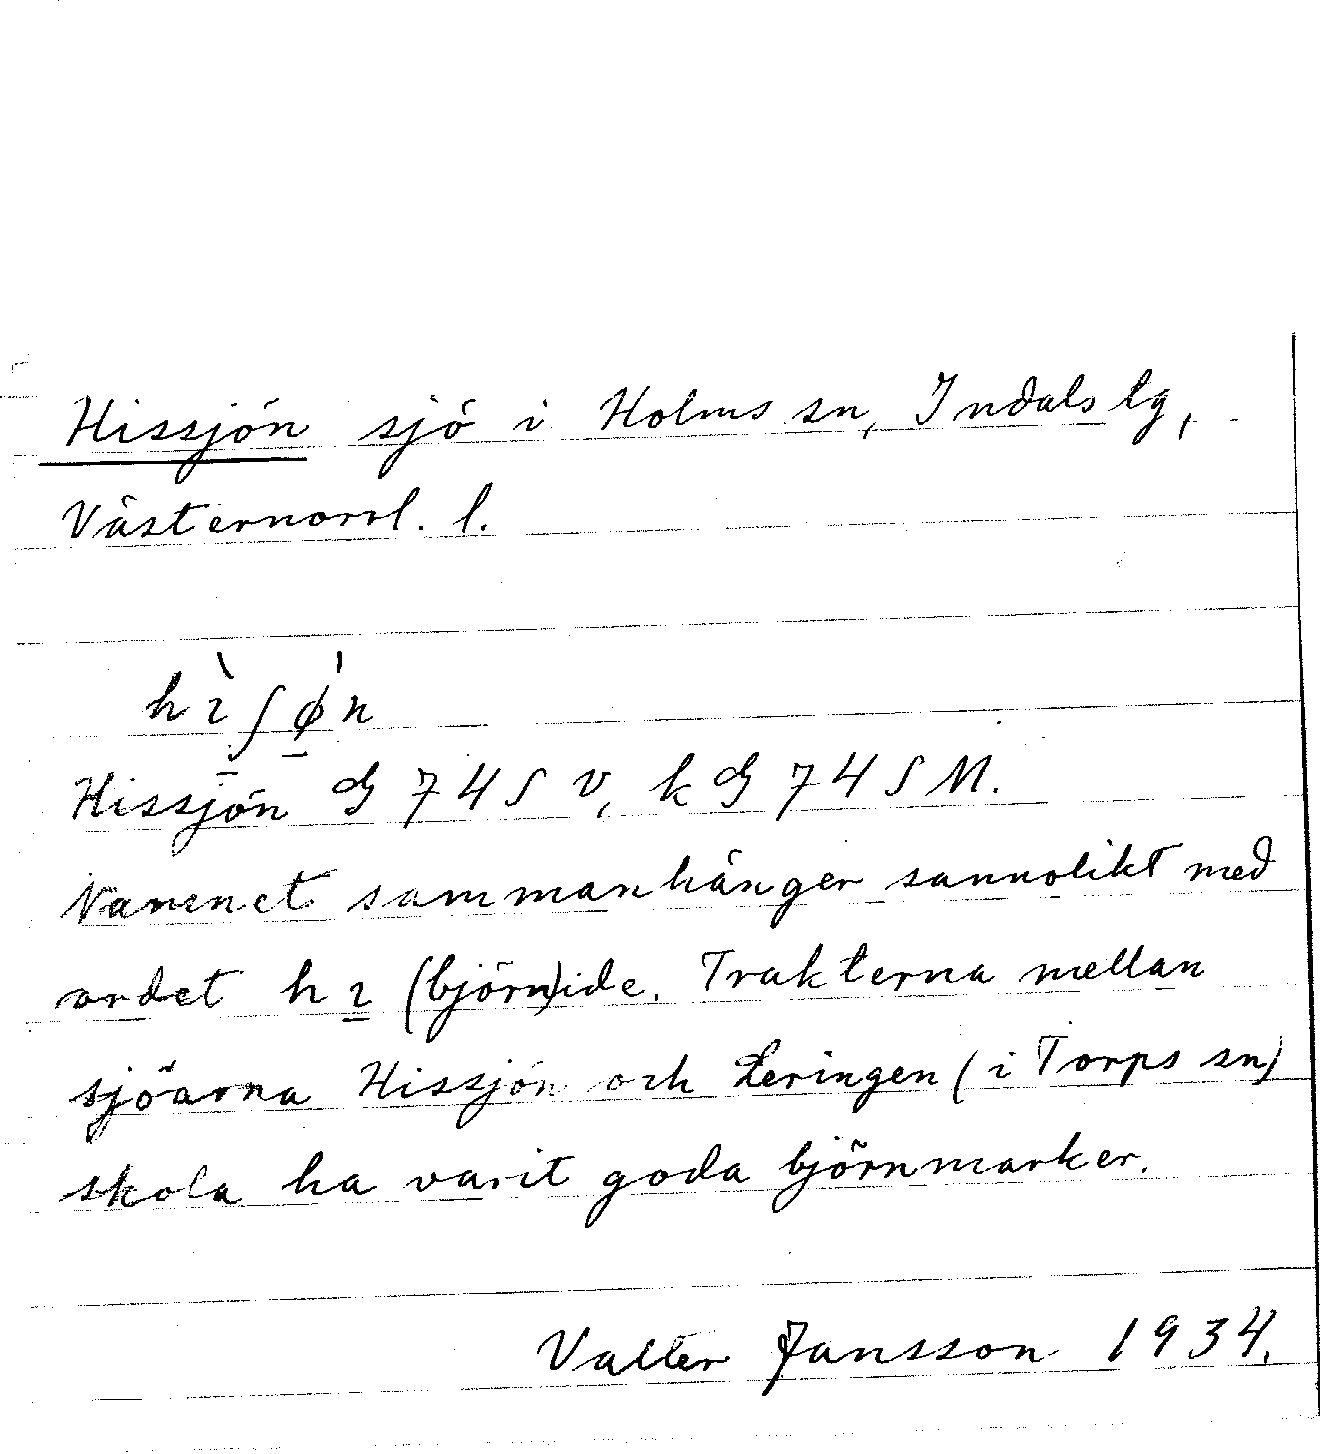 Hissjön sjö i Holms sn, Indals tg,
Västernorrl. l.
hɩ̀ʃø̍n
Hissjön G 74 S V, k G 74 S M.
Namnet sammanhänger sannolikt med
ordet hɩ (björn)ide. Trakterna mellan
sjöarna Hissjön och Leringen (i Torps sn)
skola ha varit goda björnmarker.
Valter Jansson 1934.